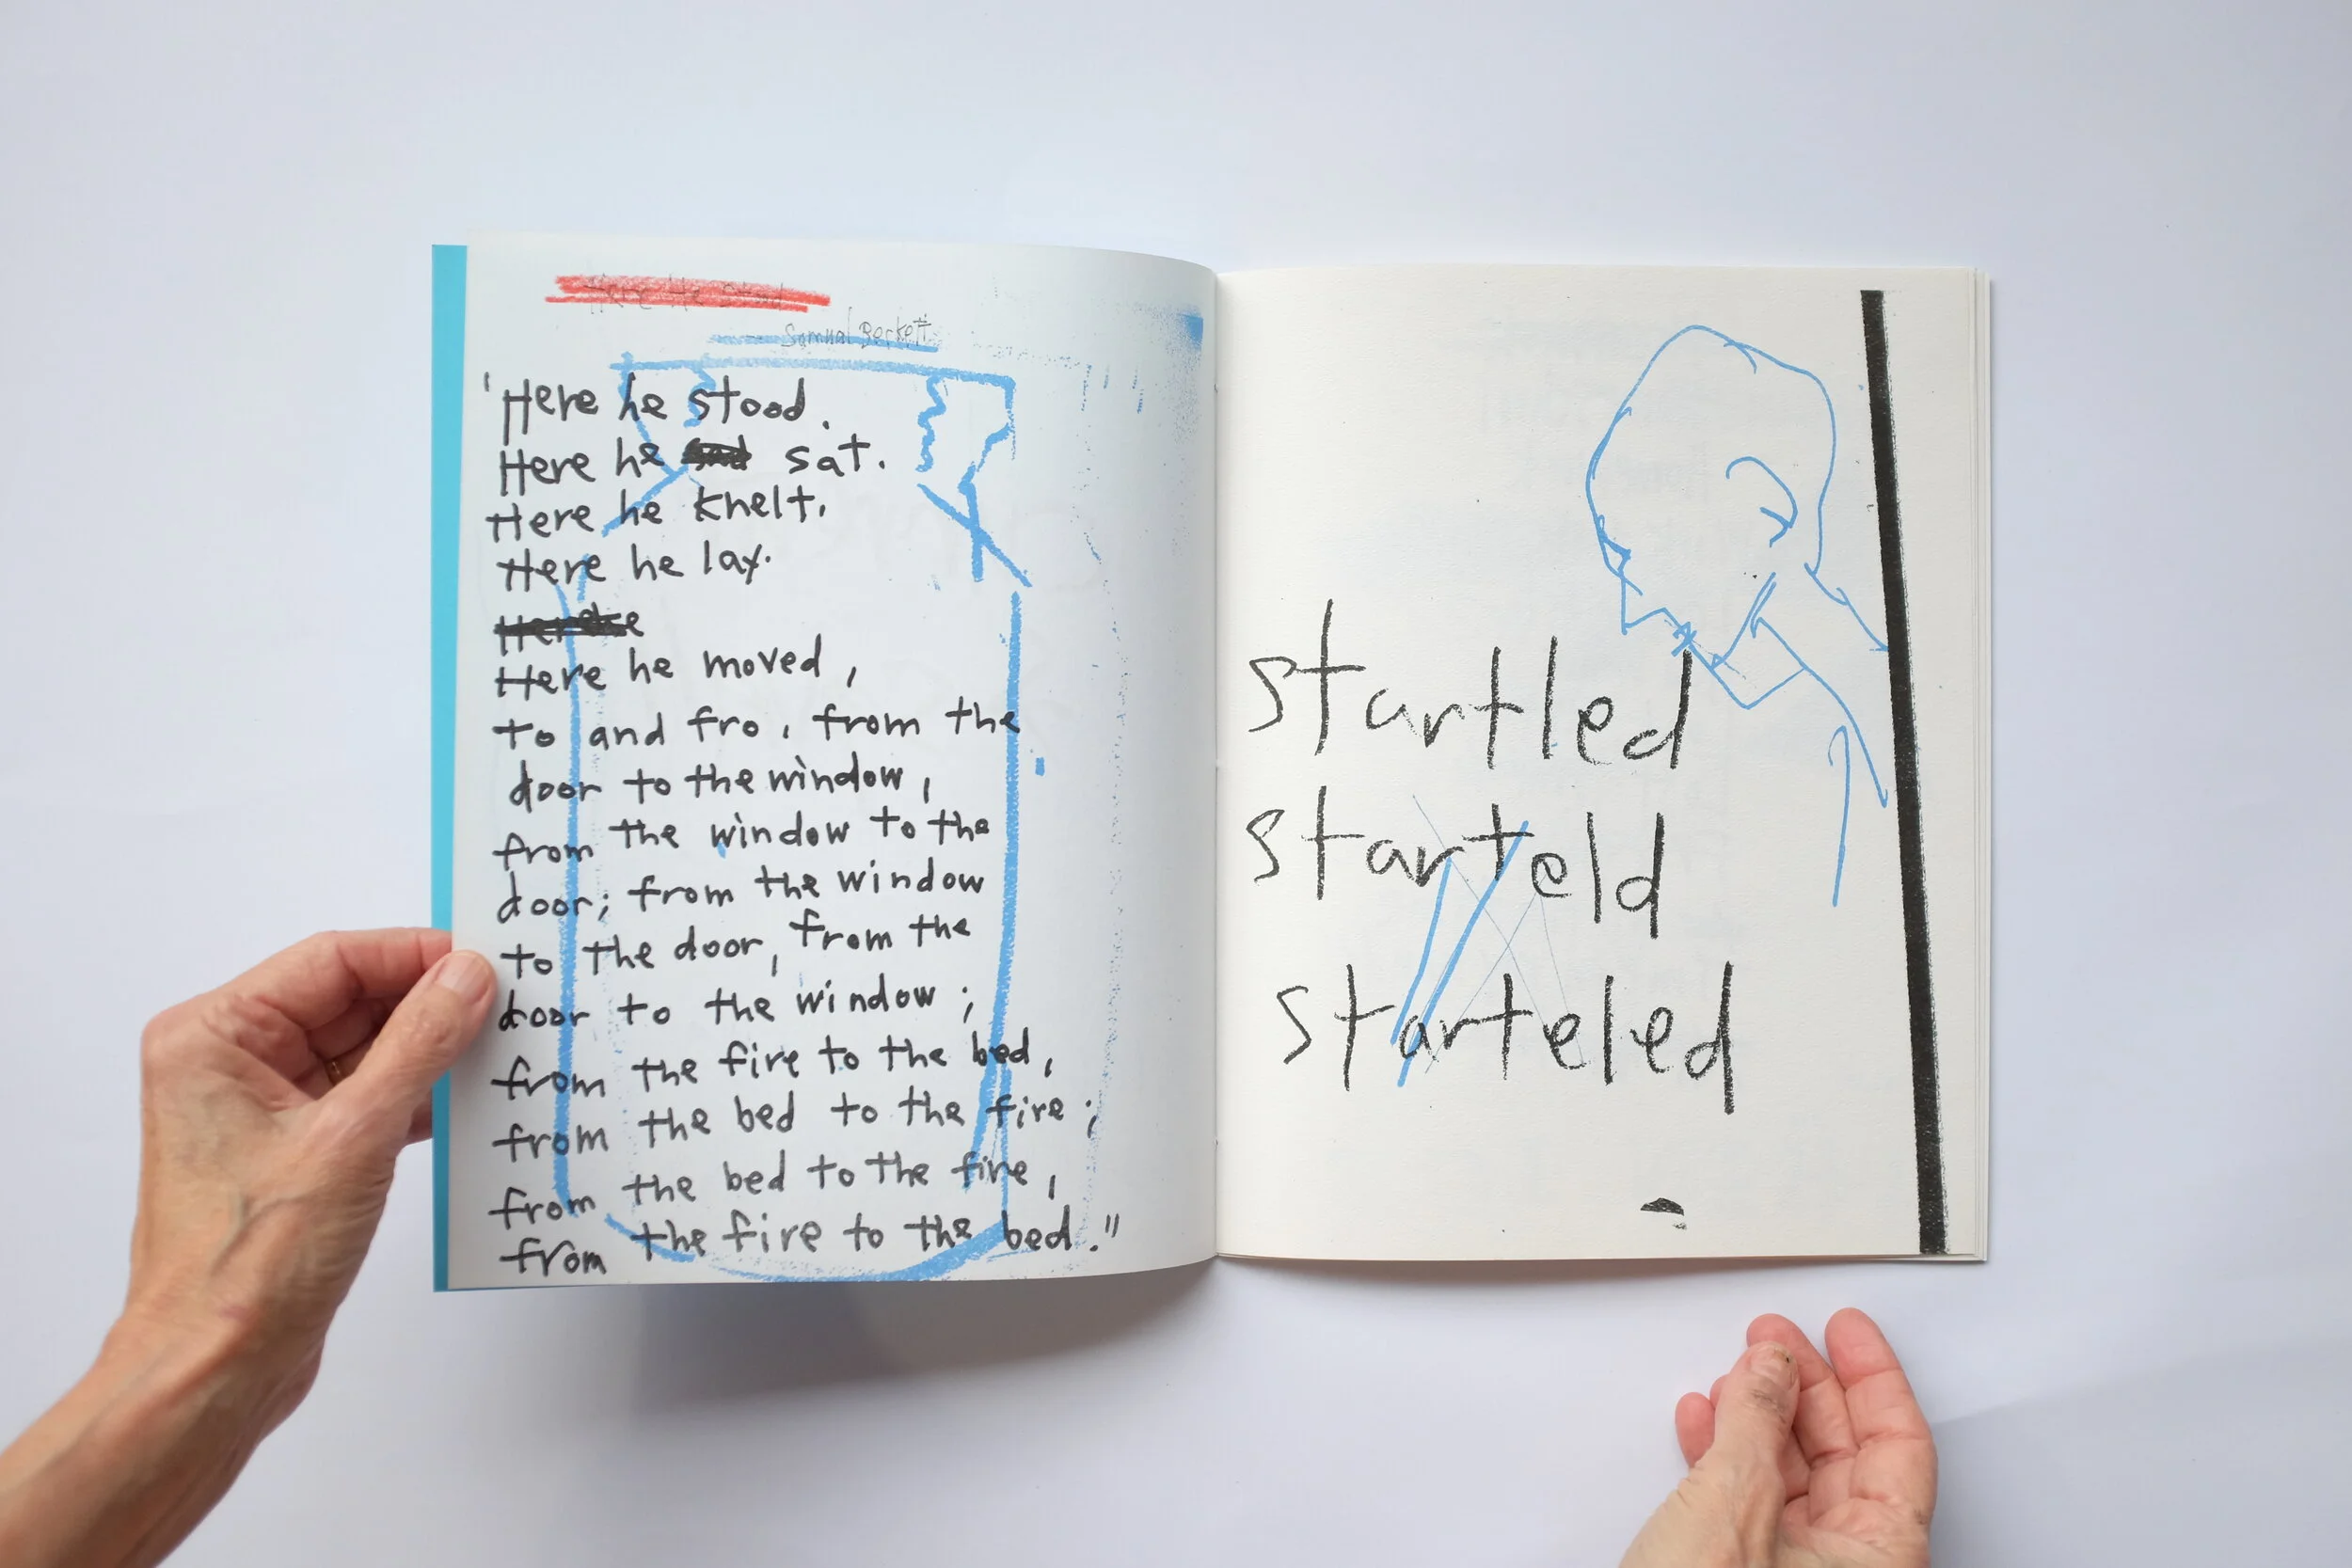 Here He Stood
Samual Beckett
'Here he stood.
Here he sat.
Here he knelt.
Here he lay.
Here he
Here he moved,
to and fro, from the
door to the window,
from the window to the
door; from the window
to the door, from the
door to the window;
from the fire to the bed,
from the bed to the fire;
from the bed to the fire,
from the fire to the bed."
startled
starteld
starteled